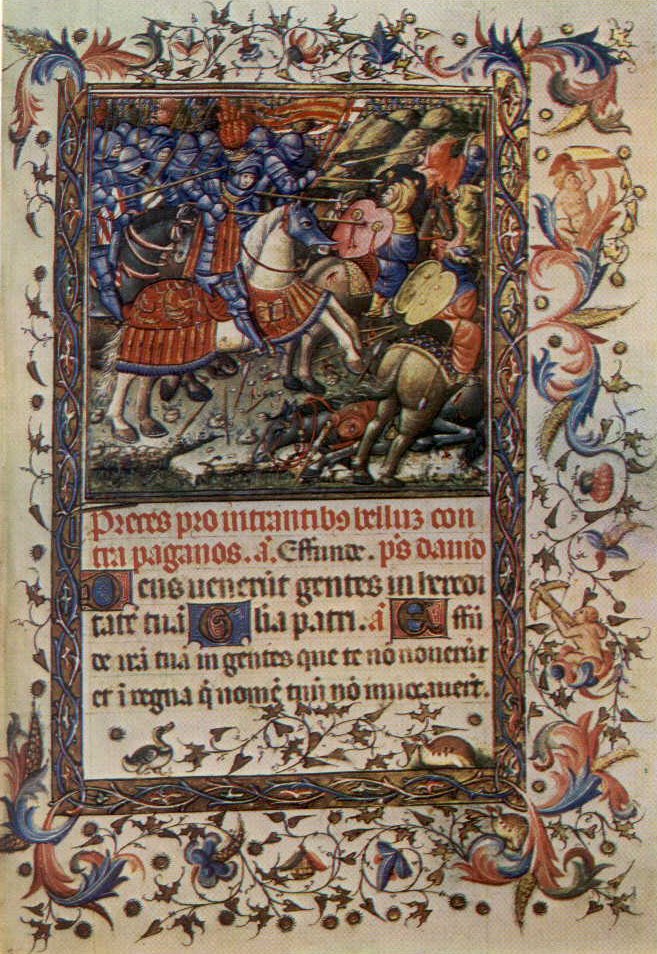 Preces pro intrantibꝯ belluʒ con
tra paganos. a͞. Effunde. p͞s dauid
Deus uener͞ut gentes in heredi
tate tuā Gl͞ia patri. a͞ Effū
de irā tua in gentes que te nō nouer͞ut
et ī regna q̄ nomē tuū nō inuocauer͞t.